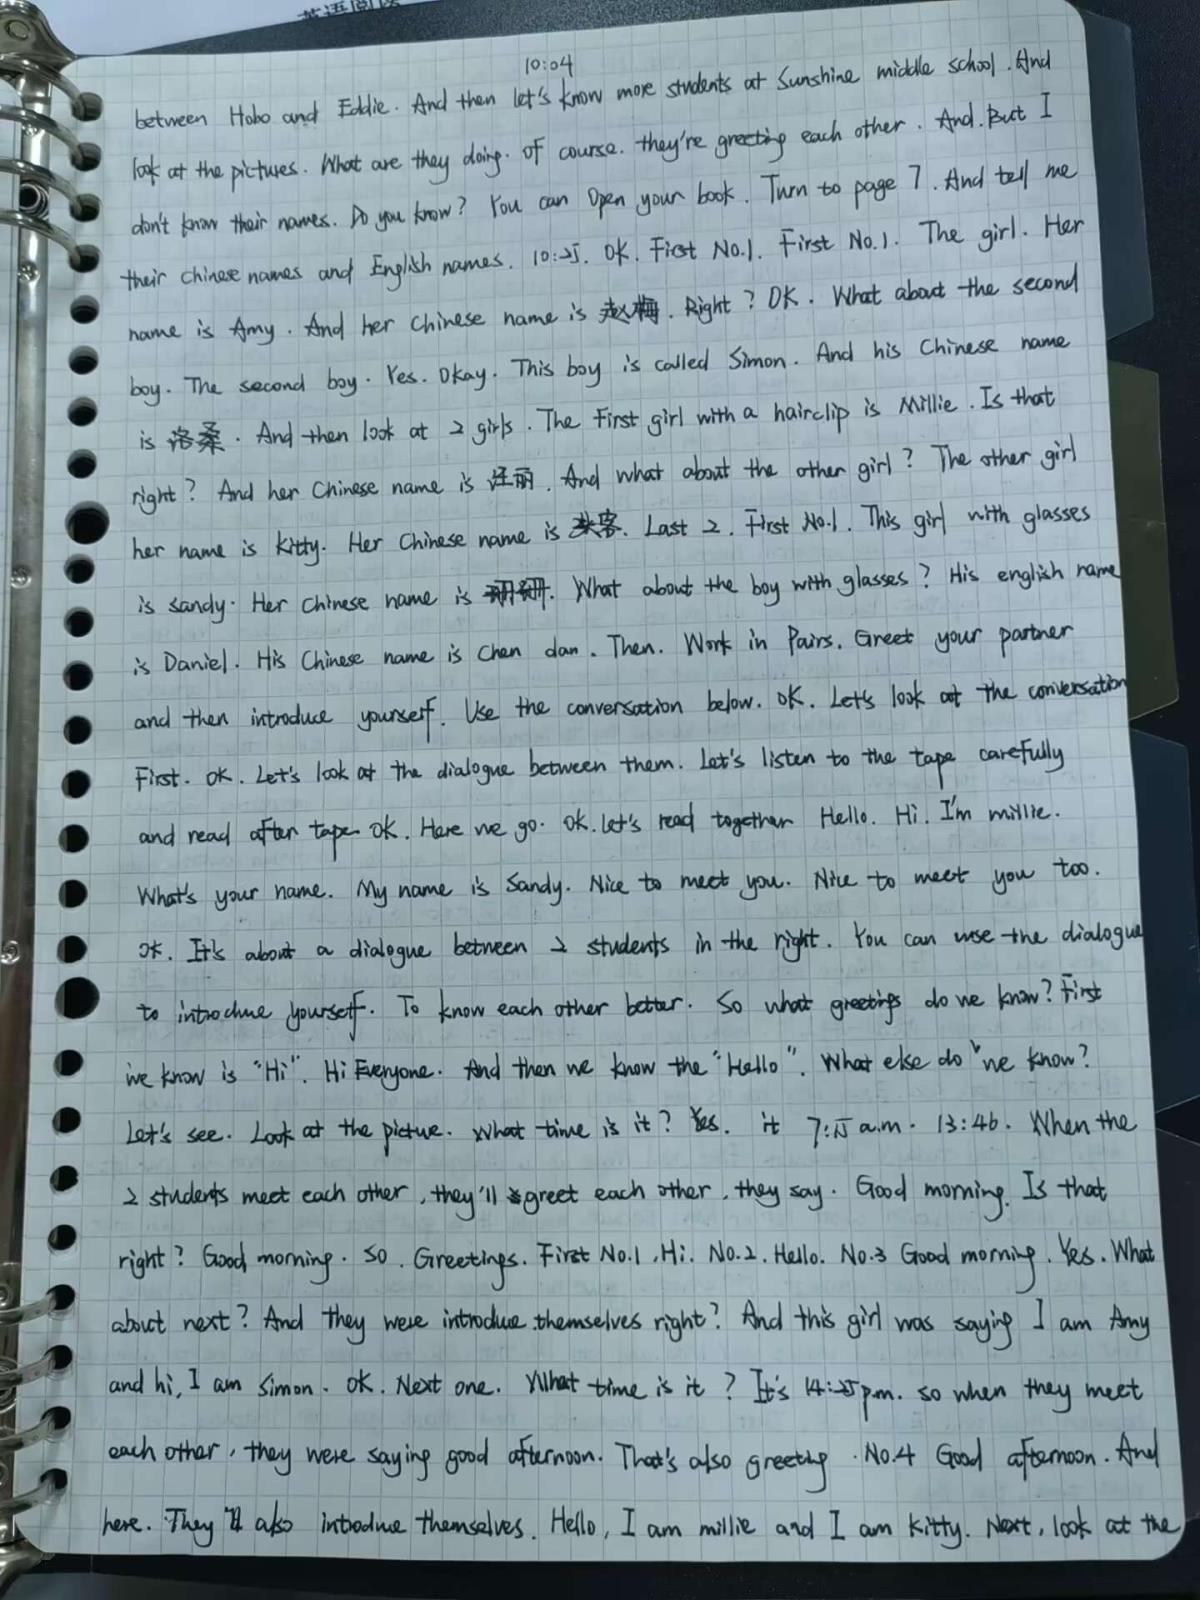 英语阅读
10:04
between Hobo and Eddie. And then let's know more students at Sunshine middle school. And
look at the pictures. What are they doing. Of course. they're greeting each other. And. But I
don't know their names. Do you know? You can Open your book. Turn to page 7. And tell me
their chinese names and English names. 10:25. OK. First No.1. First No.1. The girl. Her
name is Amy. And her Chinese name is 赵梅. Right? OK. What about the second
boy. The second boy. Yes. Okay. This boy is called Simon. And his Chinese name
is 洛桑. And then look at 2 girls. The First girl with a hairclip is Millie. Is that
right? And her Chinese name is 汪丽. And what about the other girl? The other girl
her name is kitty. Her Chinese name is. Last 2. First No.1. This girl with glasses
is sandy. Her Chinese name is 珊珊. What about the boy with glasses? His english name
is Daniel. His Chinese name is Chen dan. Then. Work in Pairs. Greet your partner
and then introduce yourself. Use the conversation below. OK. Let's look at the conversation
First. OK. Let's look at the dialogue between them. Let's listen to the tape carefully
and read after tape OK. Here we go. OK. let's read together Hello. Hi. I'm millie.
What's your name. My name is Sandy. Nice to meet you. Nice to meet you too.
OK. It's about a dialogue between 2 students in the right. You can use the dialogue
to introduce yourself. To know each other better. So what greetings do we know? First
we know is "Hi". Hi Everyone. And then we know the "Hello". What else do we know?
Let's see. Look at the pictue. What time is it? Yes. it 7:15 a.m. 13:46. When the
2 students meet each other, they'll greet each other, they say. Good morning. Is that
right? Good morning. So. Greetings. First No.1, Hi. No.2. Hello. No.3 Good morning. Yes. What
about next? And they were introduce themselves right? And this girl was saying I am Amy
and hi, I am Simon. OK. Next one. What time is it? It's 14:25 p.m. so when they meet
each other, they were saying good afternoon. That's also greeting. No.4 Good afternoon. And
here. They'll also introduce themselves. Hello, I am millie and I am Kitty. Next, look at the